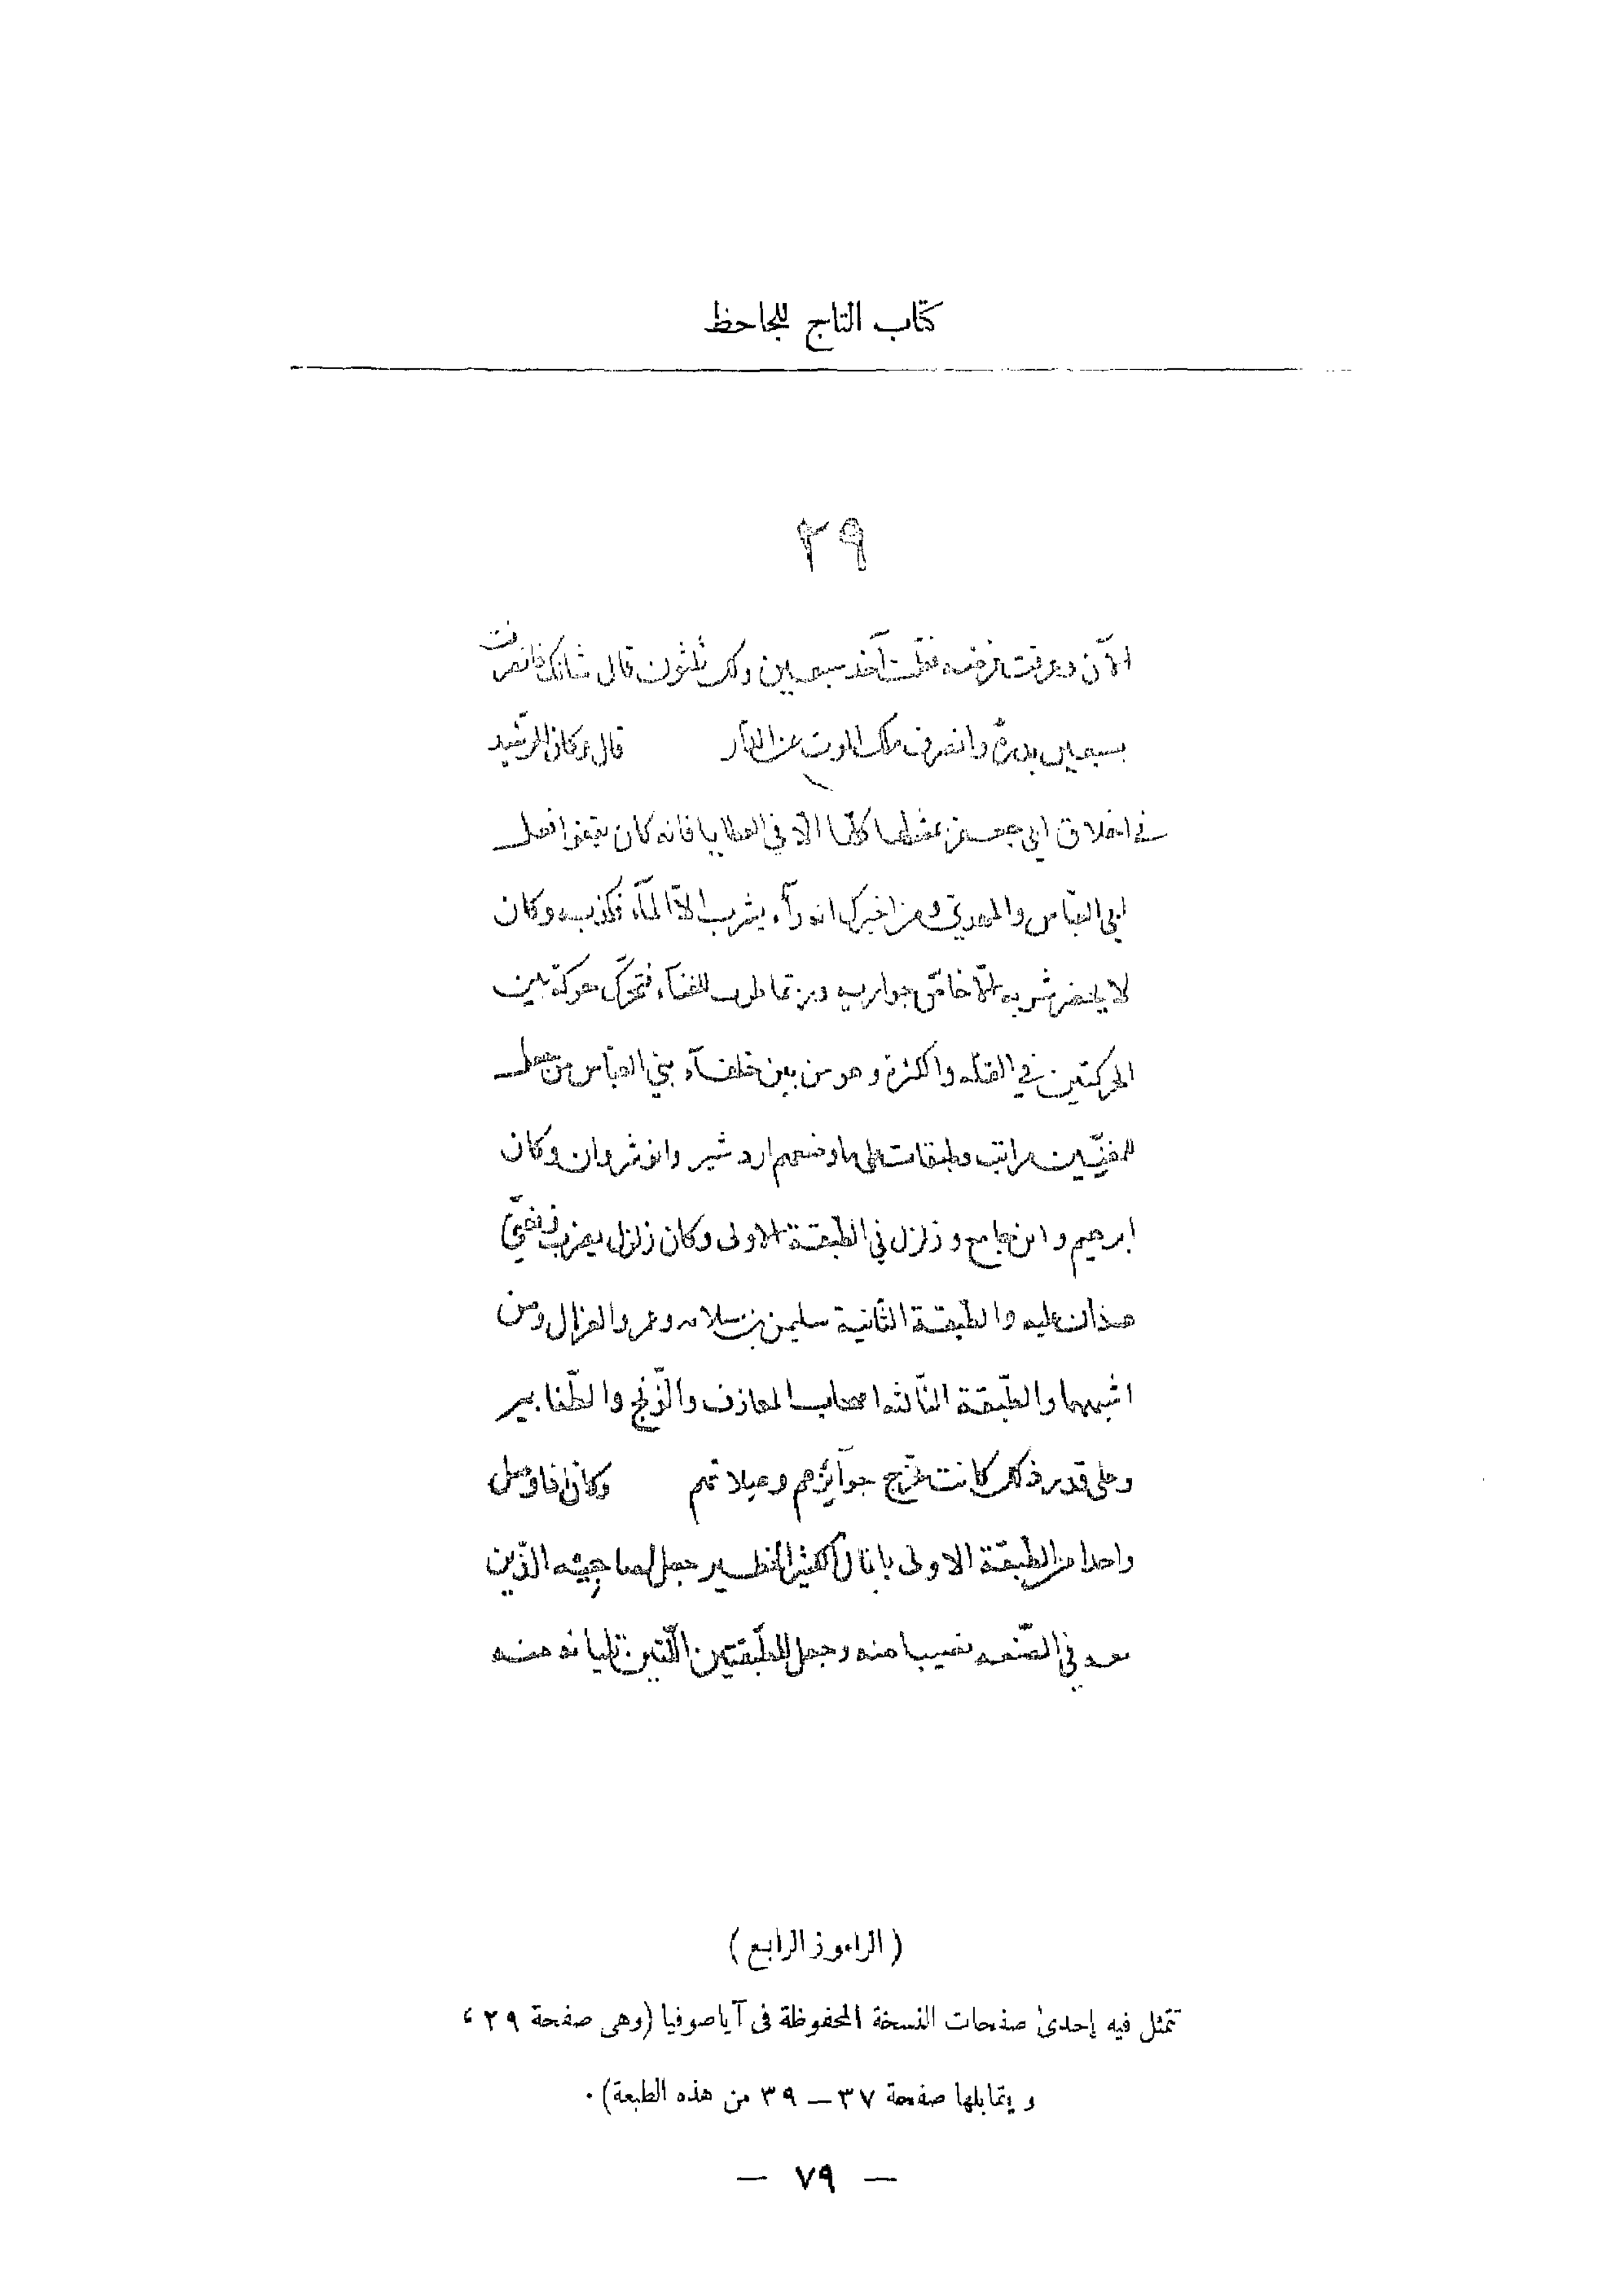 كتاب التاج للجاحظ
٢٩
الآن وعرفت غرضه فقلت آخذ سبعين ولك ثلثون قال شانك فانصرفت
بسبعين بدرة وانصرف ملك الموت عن الدار قال وكان الرشيد
في اخلاق ابي جعفر يمتثلها كلها الا في العطايا فانه كان يقفوا فعل
ابي العباس والمهدي ومن اخبرك انه رآه يشرب الا المآء فكذبه وكان
لا يحضر شربه الا خاص جواريه وربما طرب للغنآء فتحرك حركة بين
الحركتين في القله والكثرة وهو من بين خلفآء بني العباس من جعل
للمغنيين مراتب وطبقات على ما وضعهم اردشير وانوشروان وكان
ابرهيم وابن جامع وزلزل في الطبقة الاولى وكان زلزل يضرب ويغني
هذان عليه والطبقة الثانية سليمن بن سلام وعمرو الغزال ومن
اشبههما والطبقة الثالثه اصحاب المعازف والونج والطنابير
وعلى قدر ذلك كانت تخرج جوآئزهم وصلاتهم وكان اذا وصل
واحدا من الطبقة الاولى بالمال الكثير الخطير جعل لصاحبيه الذين
معه في الصنعه نصيبا منه وجعل للطبقتين اللتين تليانه منه
(الراموز الرابع)
تتمثل فيه إحدى صفحات النسخة المحفوظة فى آياصوفيا (وهى صفحة ٢٩ ،
ويقابلها صفحة ٣٧ – ٣٩ من هذه الطبعة).
— ٧٩ —